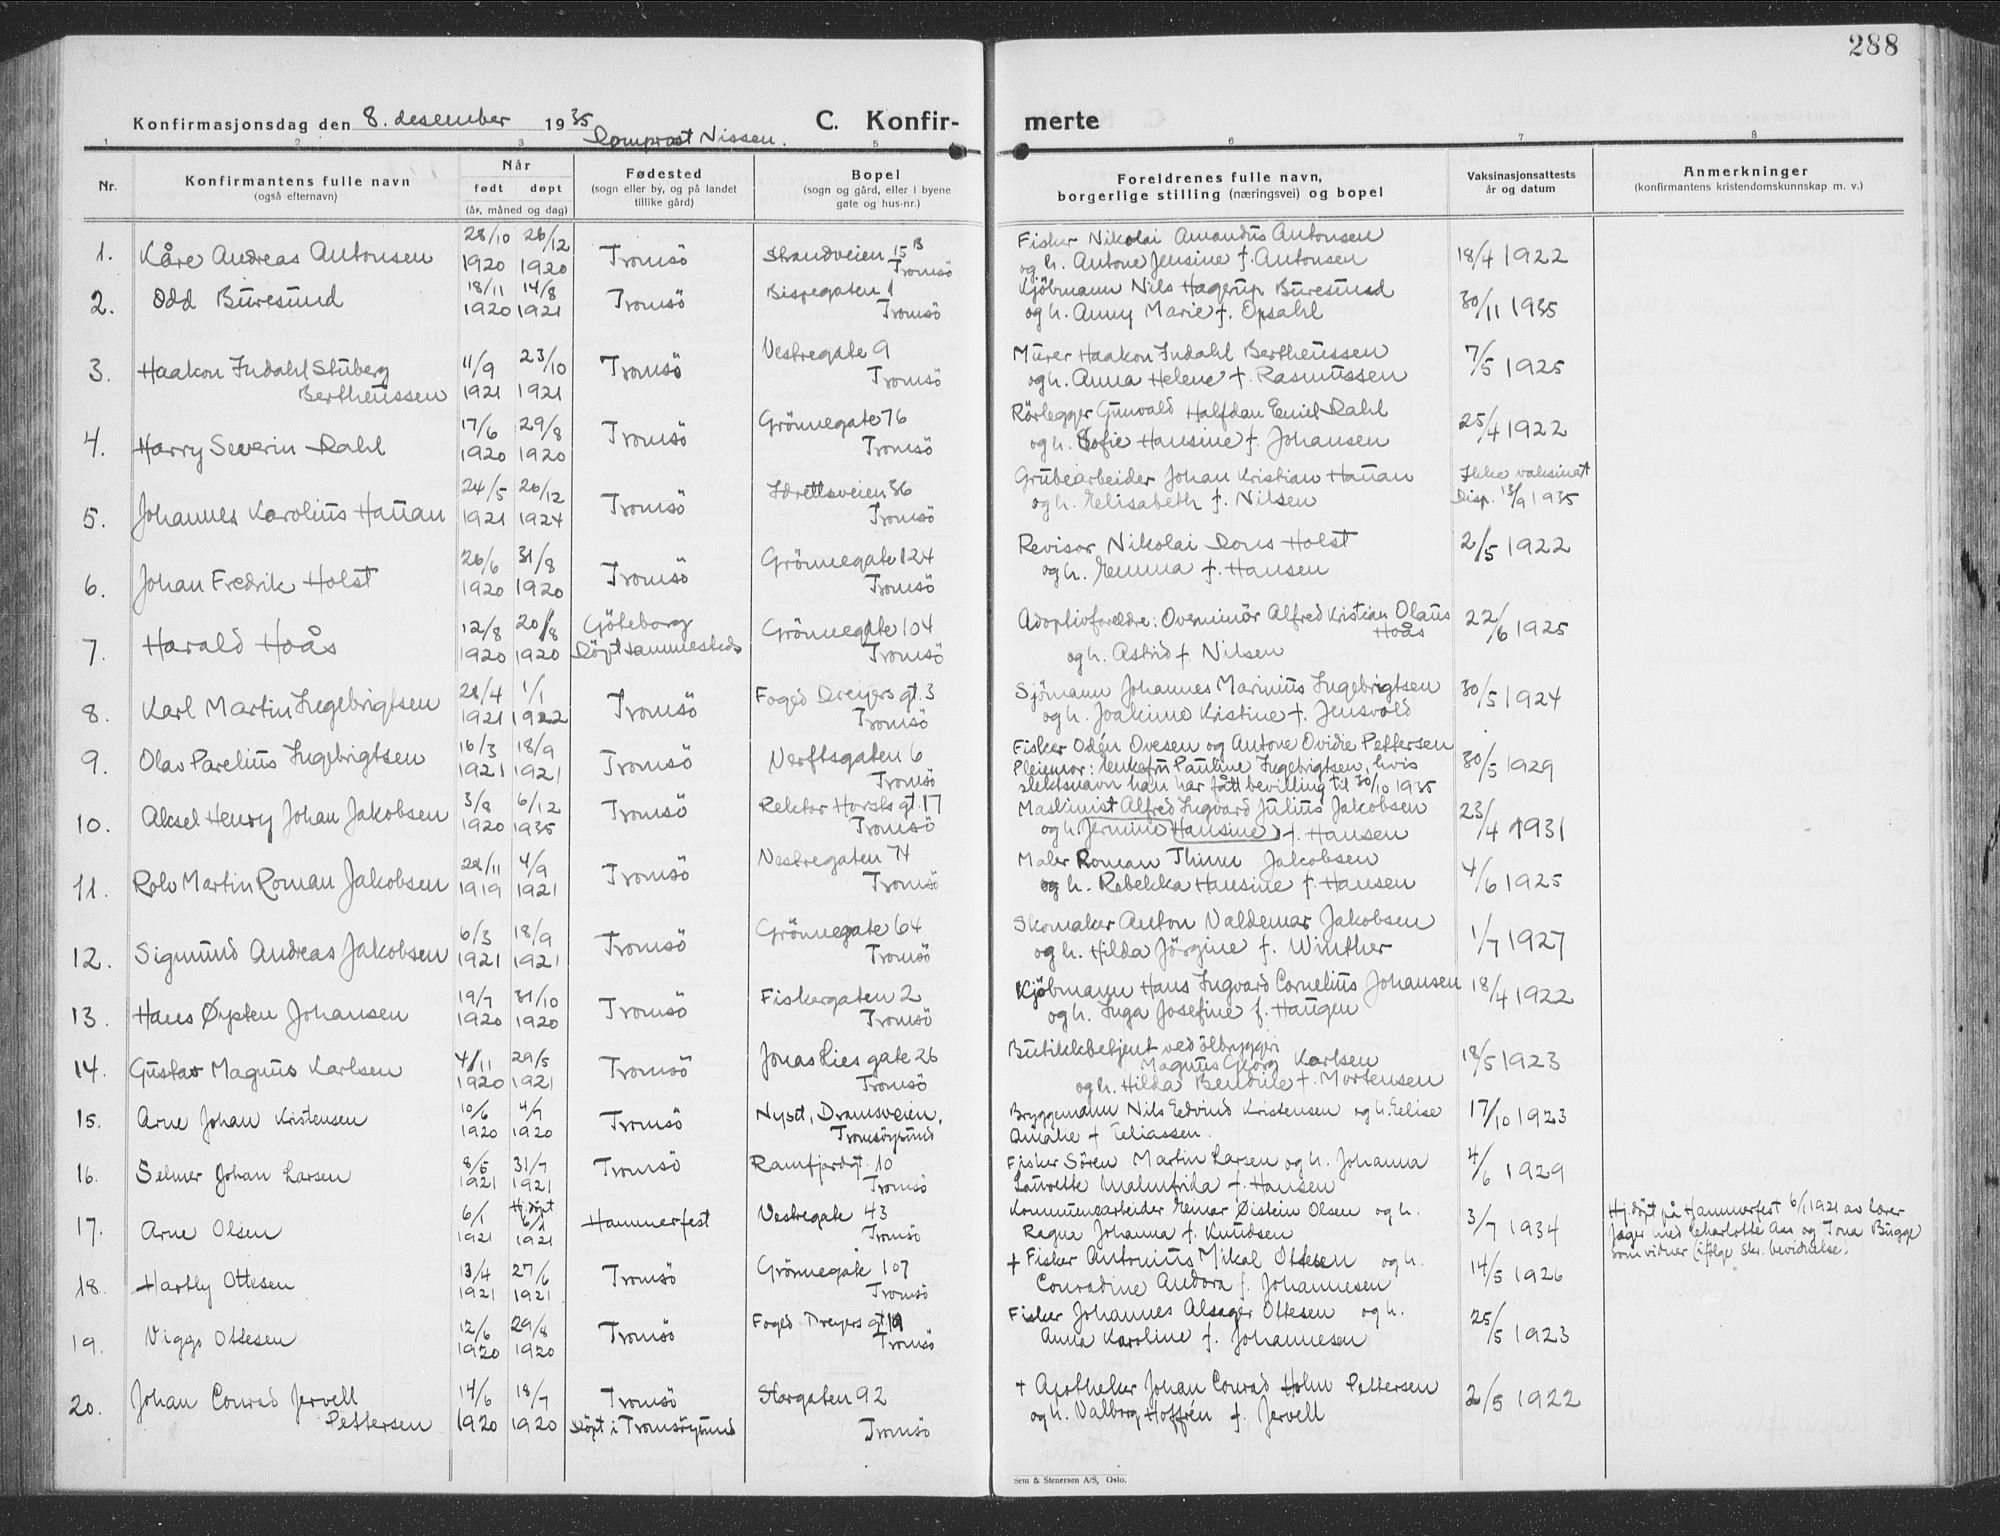 288
Konfirmasjonsdag den 8. desember 1935 C. Konfirmerte
Domprost Nissen.
1 2 3 5 6 7 8
Nr.
Konfirmantens fulle navn
(også efternavn)
Når
født døpt
(år, måned og dag)
Fødested
(sogn eller by, og på landet
tillike gård)
Bopel
(sogn og gård, eller i byene
gate og hus-nr.)
Foreldrenes fulle navn,
borgerlige stilling (næringsvei) og bopel
Vaksinasjonsattests
år og datum
Anmerkninger
(konfirmantens kristendomskunnskap m. v.)
28/10 26/12 Fisker Nikolai Amandus Antonsen
1. Kåre Andreas Antonsen 1920 1920 Tromsö Strandveien 15 B Tromsö og h. Antone Jensine f. Antonsen 18/4 1922
18/11 14/8 Bispegaten 1 Kjöbmann Nils Hagerup Buresund
2. Odd Buresund 1920 1921 Tromsö Tromsö og h. Anny Marie f. Opsahl 30/11 1935
11/9 23/10 Vestregate 9 Murer Haakon Indahl Bertheussen
3. Haakon Indahl Stuberg Tromsö 7/5 1925
Bertheussen 1921 1921 Tromsö og h. Anna Helene f. Rasmussen
17/6 29/8 Grönnegate 76 Rörlegger Gunvald Halfdan Emil Dahl
4. Harry Severin Dahl 1920 1920 Tromsö Tromsö og h. Sofie Hansine f. Johansen 25/4 1922
24/5 20/12 Idrettsveien 36 Grubearbeider Johan Kristian Hauan Ikke vaksinert
5. Johannes Karolius Hauan 1921 1924 Tromsö Tromsö og h. Elisabeth f. Nilsen Disp. 13/9 1935
26/6 31/8 Grönnegate 124 Revisor Nikolai Dons Holst 2/5 1922
6. Johan Fredrik Holst 1920 1920 Tromsö Tromsö og h. Emma f. Hansen
12/8 20/8 Göteborg Grönnegate 104 Adoptivforeldre: Overminör Alfred Kristian Olaus
Hoås
7. Harald Hoås 1920 1920 Döpt sammesteds Tromsö og h. Astrid f. Nilsen 22/6 1925
28/4 1/1 Foged Dreyers gt. 3 Sjömann Johannes Marinius Ingebrigtsen
8. Karl Martin Ingebrigtsen 1921 1922 Tromsö Tromsö og h. Joakime Kristine f. Jensvold 30/5 1924
16/3 18/9 Verftsgaten 6 Fisker Odén Ovesen og Antone Ovidie Pettersen
9. Olav Parelius Ingebrigtsen 1921 1921 Tromsö Tromsö Pleiemor: Enkefru Pauline Ingebrigtsen, hvis 30/5 1929
slektsnavn han har fått bevilling til 30/10 1935
3/8 6/12 Rektor Horsts gt. 17 Maskinist Alfred Ingvard Julius Jakobsen
10. Aksel Henry Johan Jakobsen 1920 1935 Tromsö Tromsö og h. Jermine (Hansine) f. Hansen 23/4 1931
22/11 4/9 Vestregaten 74 Maler Roman Thinn Jakobsen
11. Rolv Martin Roman Jakobsen 1919 1921 Tromsö Tromsö og h. Rebekka Hansine f. Hansen 4/6 1925
6/3 18/9 Grönnegate 64 Skomaker Anton Valdemar Jakobsen
12. Sigmund Andreas Jakobsen 1921 1921 Tromsö Tromsö og h. Hilda Jörgine f. Winther 1/7 1927
19/7 31/10 Fiskergaten 2 Kjöbmann Hans Ingvard Cornelius Johansen
13. Hans Øysten Johansen 1920 1920 Tromsö Tromsö og h. Inga Josefine f. Haugen 18/4 1922
4/11 29/5 Jonas Lies gate 26 Butikkbetjent ved ölbryggeri
Magnus Georg Karlsen
14. Gustav Magnus Karlsen 1920 1921 Tromsö Tromsö og h. Hilda Bendine f. Mortensen 18/5 1923
10/6 4/7 Nyset, Dramsveien, Bryggemann Nils Edvind Kristensen og h. Elise
15. Arne Johan Kristensen 1920 1920 Tromsö Tromsöysund Amalie f. Eliassen. 17/10 1923
8/5 31/7 Ramfjordgt. 10 Fisker Sören Martin Larsen og h. Johanna
16. Selmer Johan Larsen 1921 1921 Tromsö Tromsö Laurette Malmfrida f. Hansen 4/6 1929
6/1 Hj.döpt 6/1 Vestregate 43 Kommunearbeider Einar Øistein Olsen og h. Hj.döpt på Hammerfest 6/1 1921 av lærer
17. Arne Olsen 1921 1921 Hammerfest Tromsö Ragna Johanna f. Knudsen 3/7 1934 Jager med Charlotte Aas og Tona Bugge
som vidner (ifölge skr. bevidnelse)
13/4 27/6 Grönnegate 107 + Fisker Antonius Mikal Ottesen og h.
18. Hartly Ottesen 1921 1921 Tromsö Tromsö Conradine Andora f. Johannesen 14/5 1926
12/6 29/8 Foged Dreyers gt. Fisker Johannes Alsager Ottesen og h.
19. Viggo Ottesen 1920 1920 Tromsö Tromsö Anna Karoline f. Johannesen 25/5 1923
14/6 18/7 Tromsö Storgaten 92 + Apotheker Johan Conrad Holm Pettersen
20. Johan Conrad Jervell
Pettersen 1920 1920 Döpt i Tromsöysund Tromsö og h. Valborg Hoffrén f. Jervell 2/5 1922
Sem & Stenersen A/S, Oslo.